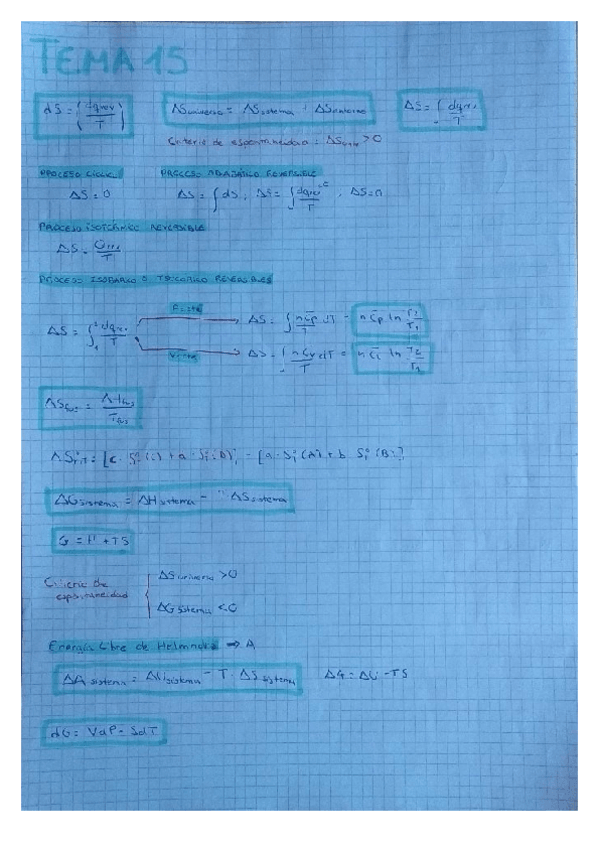 TEMA 15
dS = (dqrev / T)   ΔSuniverso = ΔSsistema + ΔSentorno   ΔS = ∫ dqrev / T
Criterio de espontaneidad = ΔSuniv > 0
PROCESO CÍCLIC   PROCESO ADIABÁTICO REVERSIBLE
ΔS = 0   ΔS = ∫ dS ; ΔS = ∫ dqrev / T , ΔS = 0
PROCESO ISOTÉRMICO REVERSIBLE
ΔS = Qrev / T
PROCESO ISOBÁRICO O ISOCÓRICO REVERSIBLES
P=cte   ΔS = ∫ nCp / T dT = nCp ln T2 / T1
ΔS = ∫₁² dqrev / T
V=cte   ΔS = ∫ nCv dT / T = ln T2 / T1
ΔSfus = ΔHfus / Tfus
ΔSº = [c · Sº(C) + Sº(D)] - [a · Sº(A) + b · Sº(B)]
ΔGsistema = ΔHsistema - T ΔSsistema
G = H + TS
Criterio de espontaneidad   ΔSuniverso > 0
ΔGsistema < 0
Energía Libre de → A
ΔAsistema = ΔUsistema - T · ΔSsistema   = ΔU - TS
dG = VdP - SdT